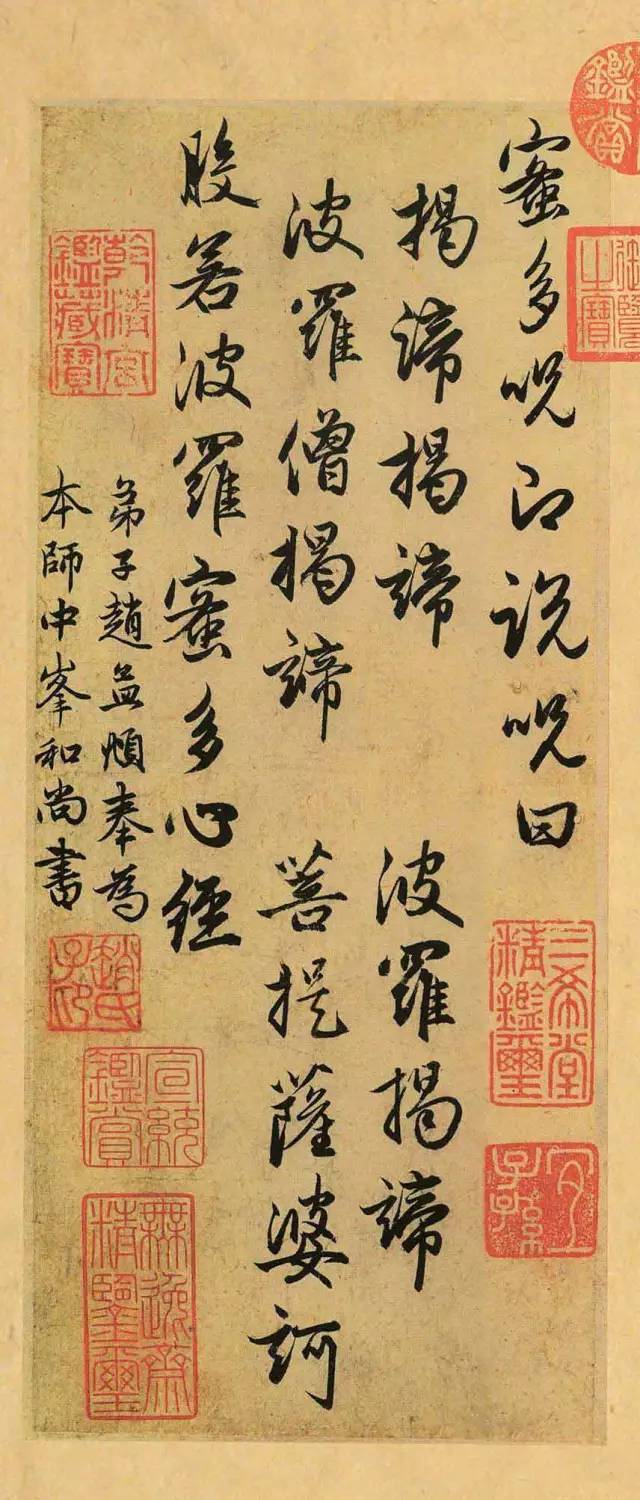 蜜多呪即說呪曰
揭諦揭諦　波羅揭諦
波羅僧揭諦　菩提薩婆訶
般若波羅蜜多心經
弟子趙孟頫奉為
本師中峯和尚書
鑑賞
三希堂精鑑璽
宜子孫
乾清宮鑑藏寶
宣統鑑賞
無逸齋精鑑璽